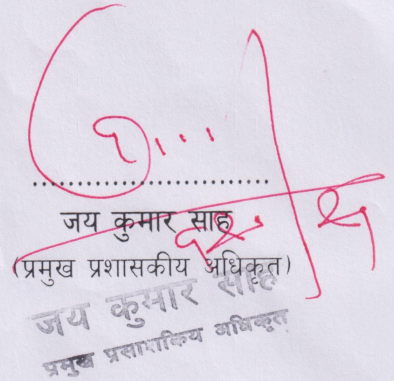 ..............................
जय कुमार साह
(प्रमुख प्रशासकीय अधिकृत)
जय कुमार साह
प्रमुख प्रसाशकिय अधिकृत